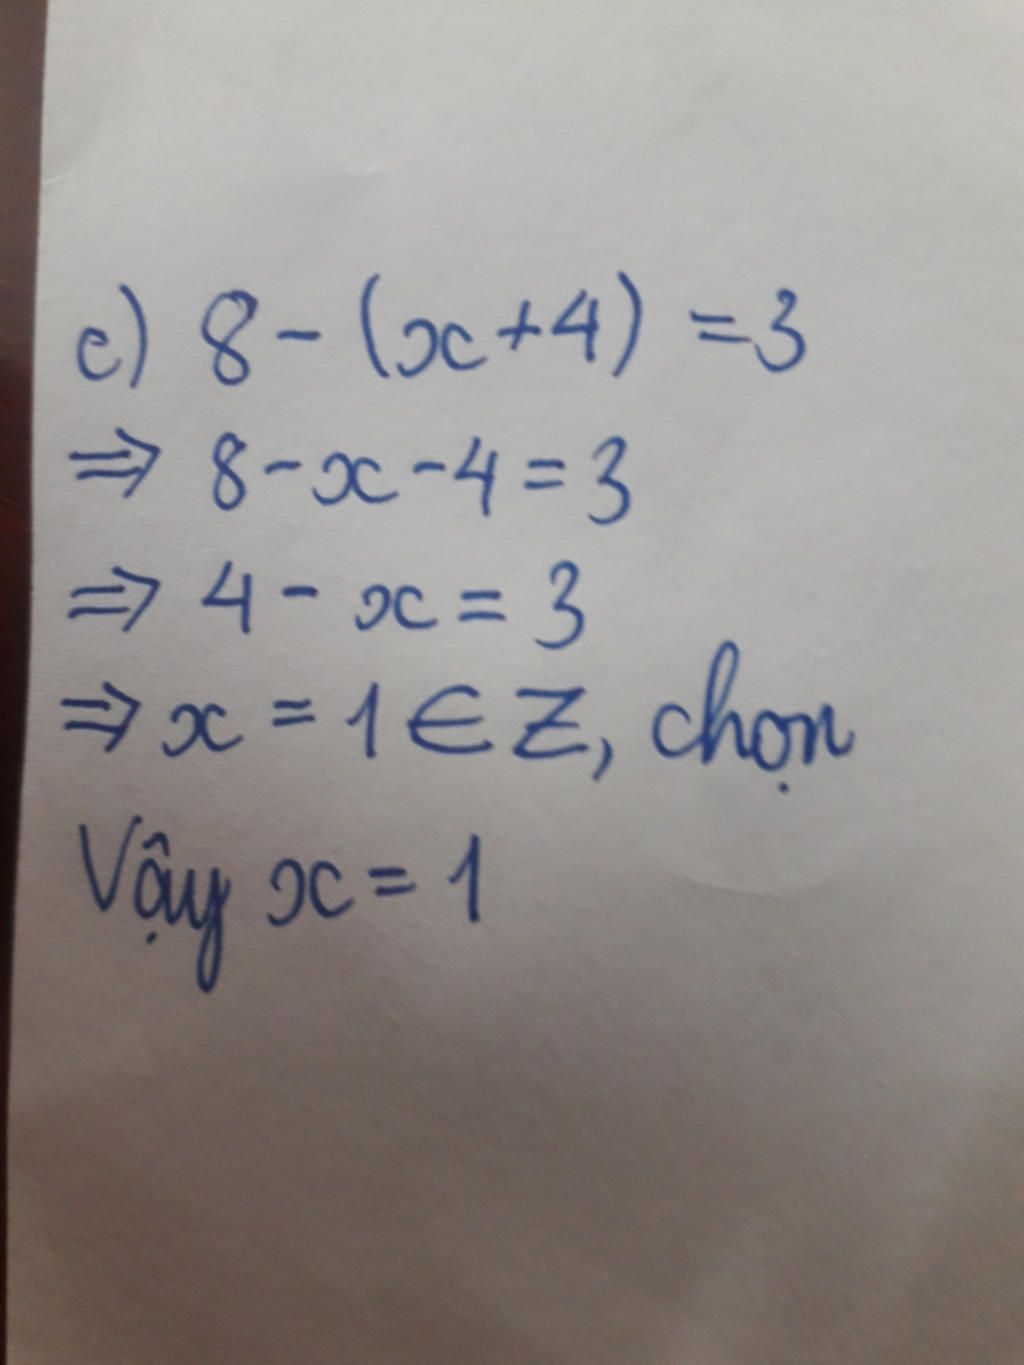 e) 8 - (x + 4) = 3
⇒ 8 - x - 4 = 3
⇒ 4 - x = 3
⇒ x = 1 ∈ Z, chọn
Vậy x = 1